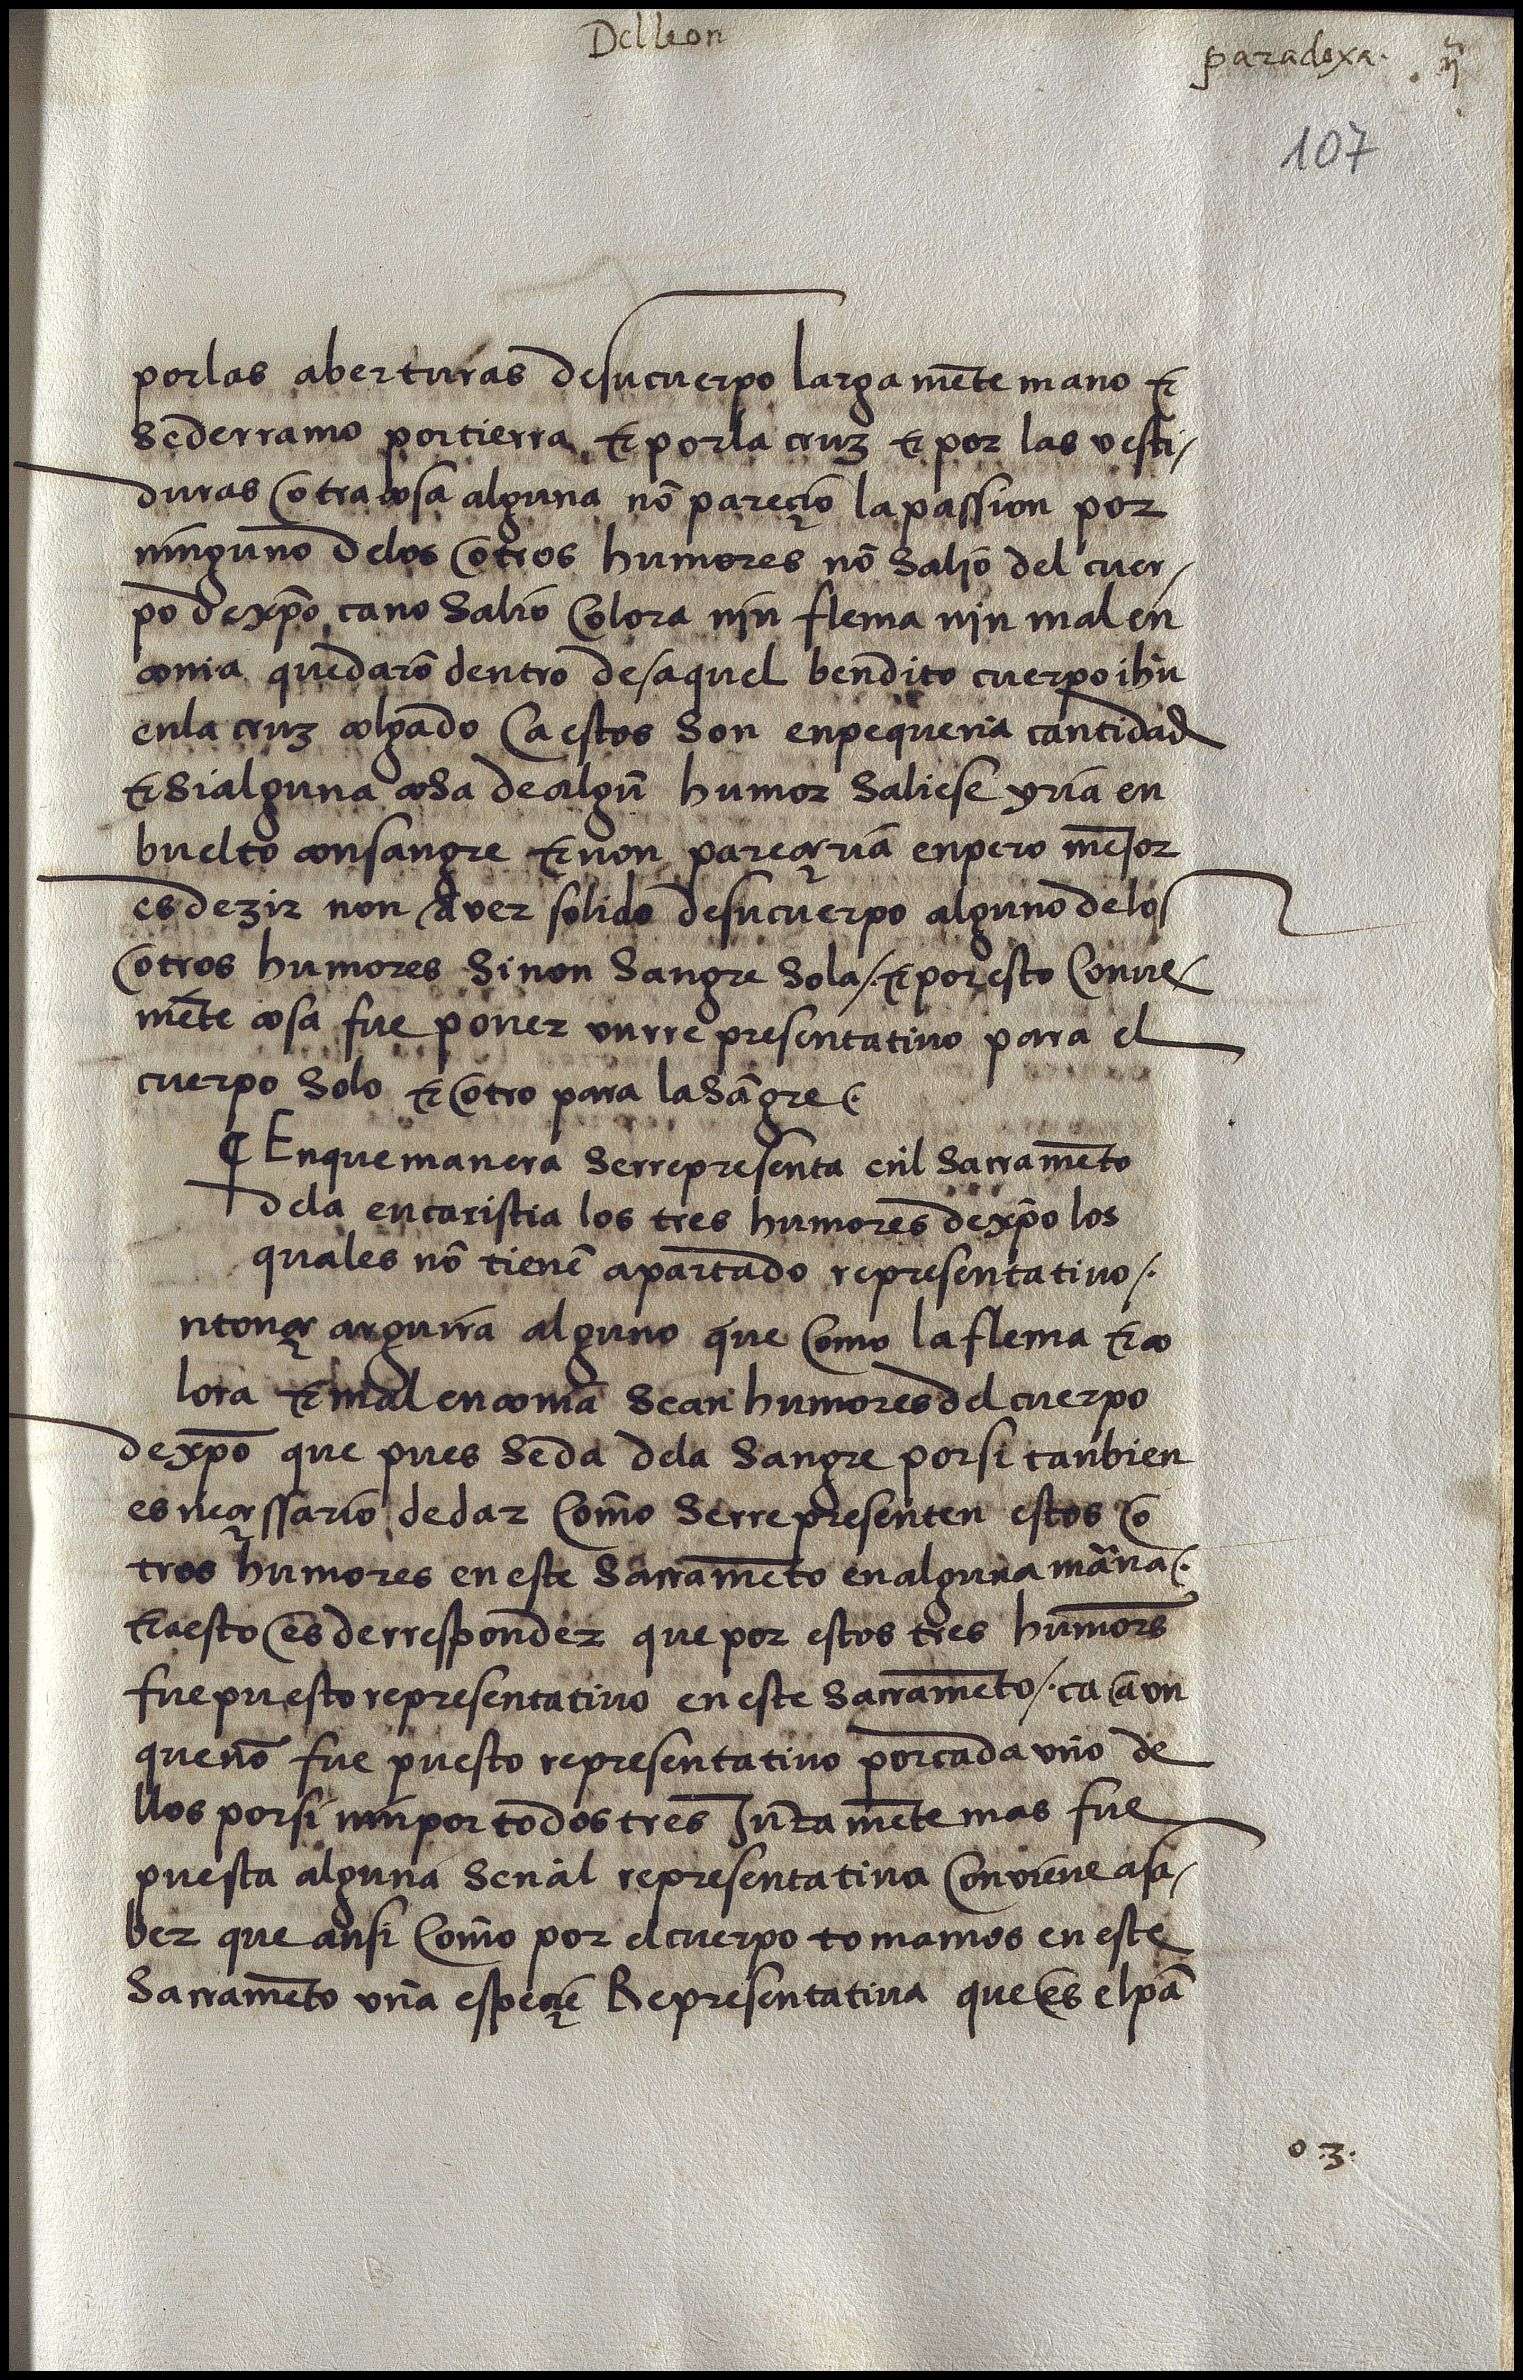 Delleon
paradoxa. . ij .
107
porlas aberturas desucuerpo largamẽte mano τ
Sederramo portierra τ porla cruz τ por las vesti/
duras Cotra cosa alguna nõ pareçio lapassion por
ninguno delos Cotros humores nõ Salio del cuer/
po dexp̃o, cano Salio Colora nin flema nin malen
conia quedarõ dentro de/aquel bendito cuerpo ihũ
enla cruz colgado Ca estos Son enpequena cantidad
τ Sialguna cosa dealgũ humor Saliese yria en
buelto consangre τ non pareçeria enpero mejor
es dezir non aver solido desucuerpo alguno delos
Cotros humores Sinon Sangre Sola/. τ poresto Convie/
mẽte cosa fue poner vnrre presentatiuo para el
cuerpo Solo τ Cotro para lasãgre(.
¶ Enquemanera Serrepresenta enl Sacramẽto
dela eucaristia los tres humores dexp̃o los
quales nõ tienẽ apartado representatiuo/.
ntonçe arguira alguno que Como laflema τ co
lora τ malenconia Sean humores del cuerpo
dexp̃o que pues Seda dela Sangre porsi tanbien
es neçessario dedar Como Serrepresenten estos Co
tros humores eneste Sacramẽto enalguna mãna(.
τ aesto Ces derresponder que por estos tres humors
fuepuesto representatiuo eneste Sacramẽto/. ca Caun
quenõ fue puesto representatiuo porcada vno de
llos porsi nin por todos tres Juntamẽte mas fue
puesta alguna Senal representatiua Conviene asa/
ber que ansi Como por elcuerpo tomamos eneste
Sacramẽto vna espeçiẽ Representatiua que Ces elpã
o .3.